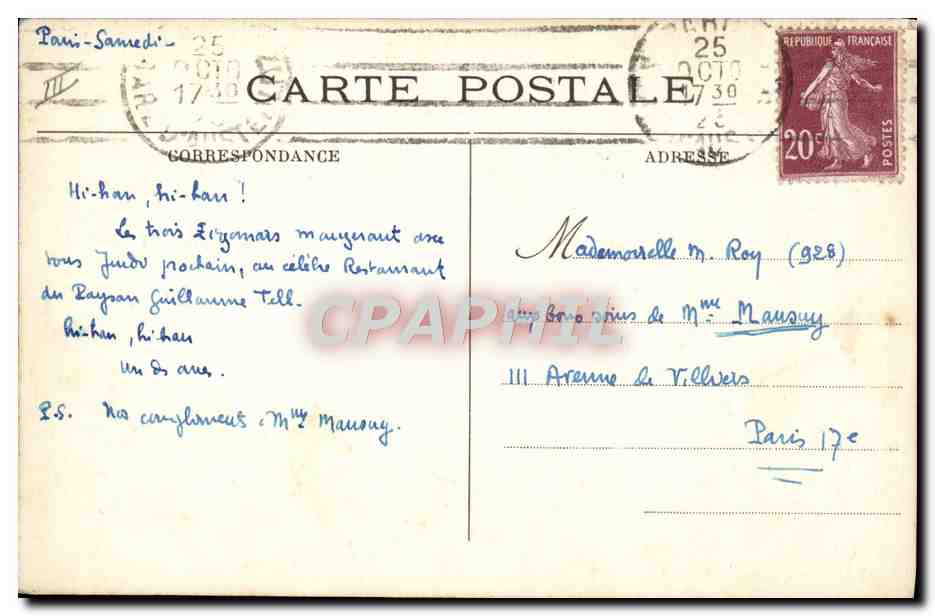 Paris-Samedi-
III
25
OCTO
17 30
25
OCTO
17 30
REPUBLIQUE FRANÇAISE
20c
POSTES
CARTE POSTALE
CORRESPONDANCE
Hi-han, hi-han !
Les trois Zigomars mangeront avec
vous Jeudi prochain, au célèbre Restaurant
du Paysan Guillaume Tell.
hi-han, hi-han
Un des anes.
P.S. Nos compliments à Mme Mansuy.
ADRESSE
Mademoiselle M. Roy (928)
aux bons soins de Mme Mansuy
111 Avenue de Villiers
Paris 17e
CPAPHIL